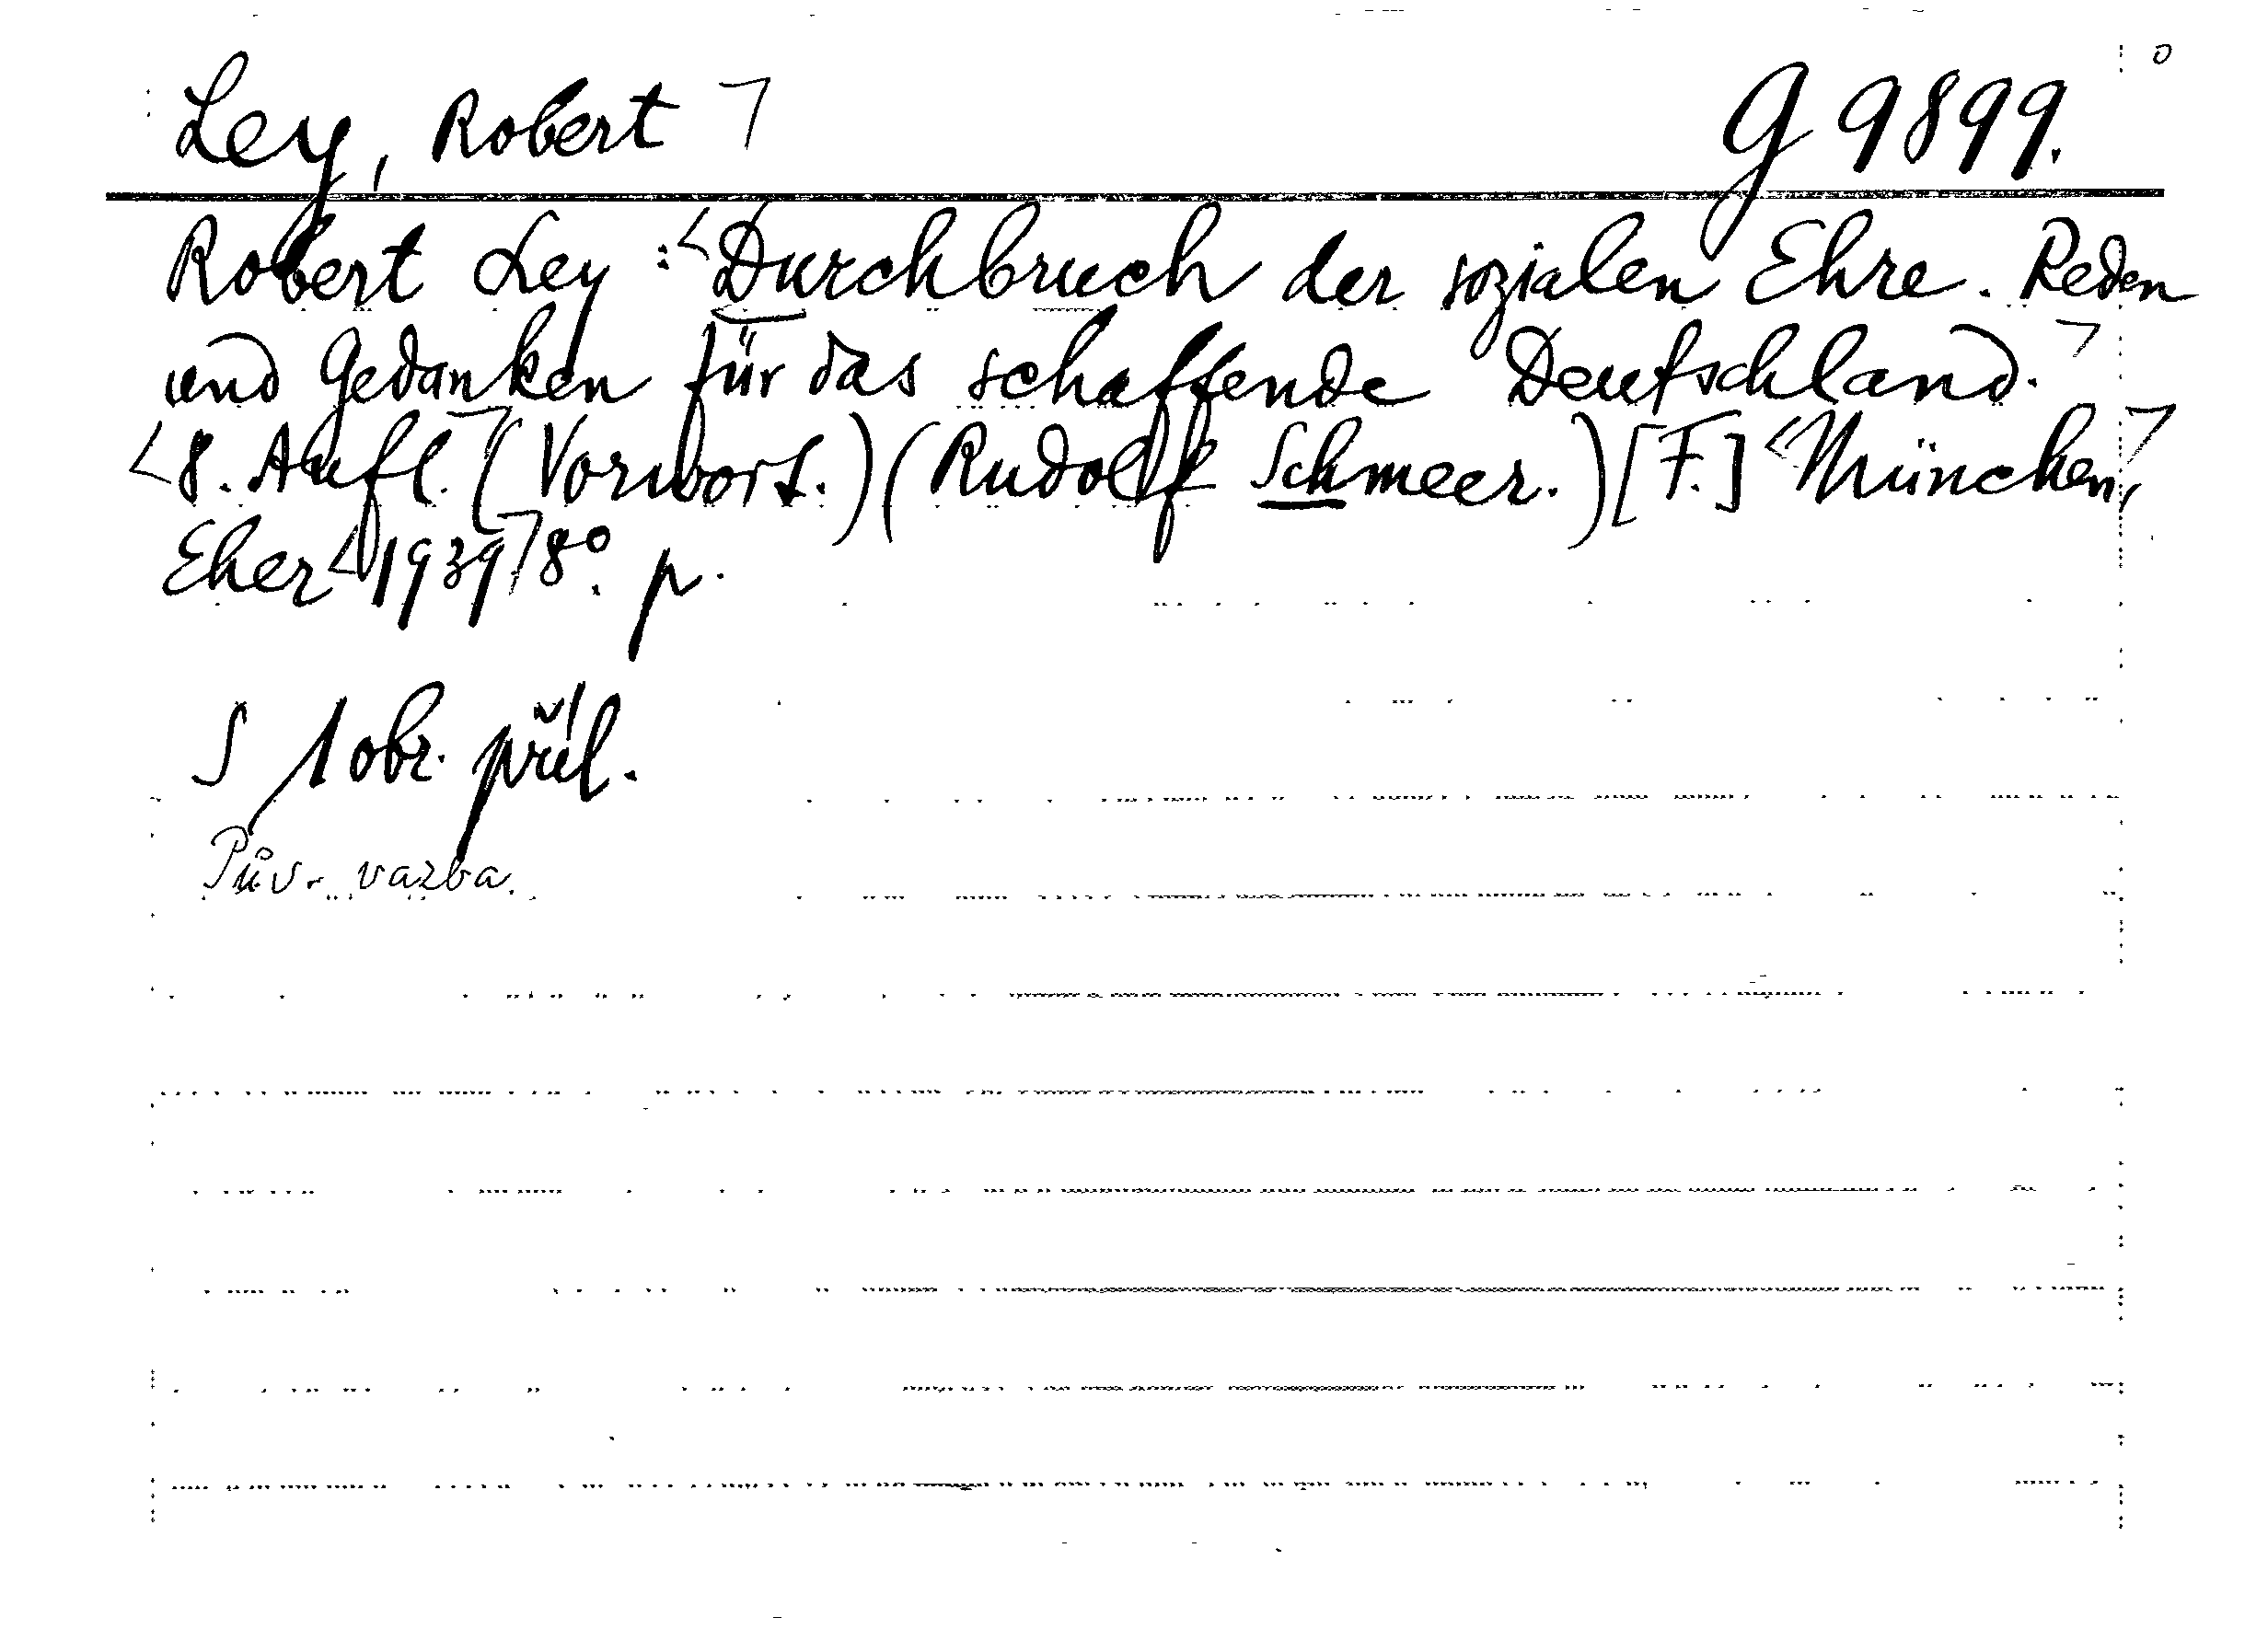 Ley, Robert ⌉ G 9899. o
Robert Ley : <Durchbruch der sozialen Ehre. Reden
und Gedanken für das schaffende Deutschland. ⌉
<8. Aufl. ⌉ (Vorwort.) (Rudolf Schmeer.) [F.] <München, ⌉
Eher <1939 ⌉ 8°. p.
S 1 obr. příl.
Pův. vazba.